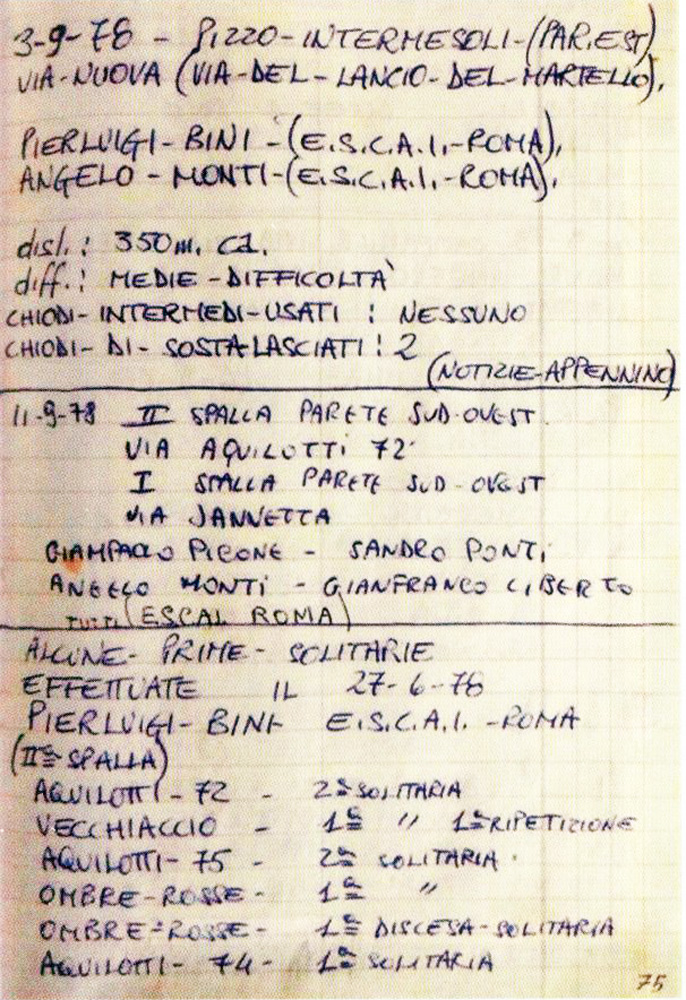 3-9-78 - PIZZO-INTERMESOLI-(PAR.EST)
VIA-NUOVA (VIA-DEL-LANCIO-DEL-MARTELLO).
PIERLUIGI-BINI-(E.S.C.A.I.-ROMA),
ANGELO-MONTI-(E.S.C.A.I.-ROMA).
disl.: 350m. ca.
diff.: MEDIE-DIFFICOLTÀ
CHIODI-INTERMEDI-USATI : NESSUNO
CHIODI-DI-SOSTA-LASCIATI: 2
(NOTIZIE-APPENNINO)
11-9-78 II SPALLA PARETE SUD-OVEST.
VIA AQUILOTTI 72'
I SPALLA PARETE SUD-OVEST
VIA JANNETTA
GIAMPAOLO PICONE - SANDRO PONTI
ANGELO MONTI - GIANFRANCO LIBERTO
TUTTI (ESCAI ROMA)
ALCUNE-PRIME-SOLITARIE
EFFETTUATE IL 27-6-78
PIERLUIGI-BINI- E.S.C.A.I.-ROMA
(IIª SPALLA)
AQUILOTTI-72 - 2ª SOLITARIA
VECCHIACCIO - 1ª " 1ª RIPETIZIONE
AQUILOTTI-75 - 2ª SOLITARIA.
OMBRE-ROSSE- 1ª "
OMBRE-ROSSE- 1ª DISCESA-SOLITARIA
AQUILOTTI-74- 1ª SOLITARIA
75